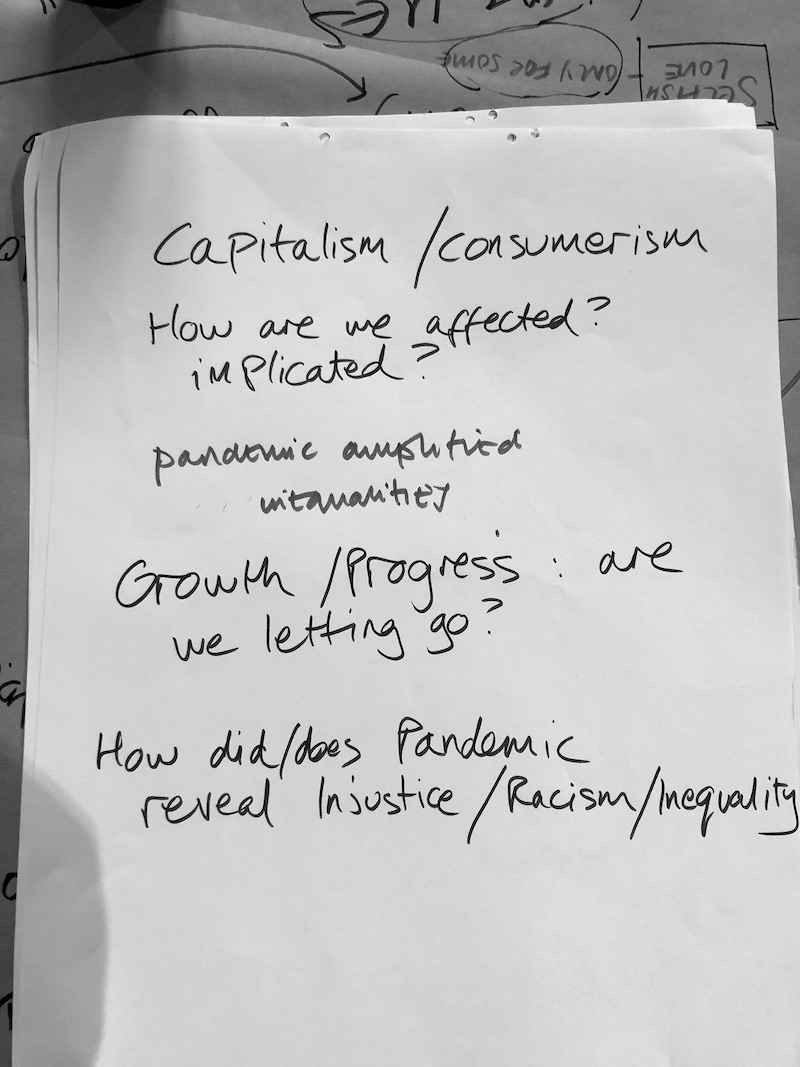 SELFISH
LOVE
ONLY FOR SOME
Capitalism / consumerism
How are we affected?
implicated?
pandemic amplified
Growth / Progress : are
we letting go?
How did/does Pandemic
reveal Injustice / Racism / Inequality